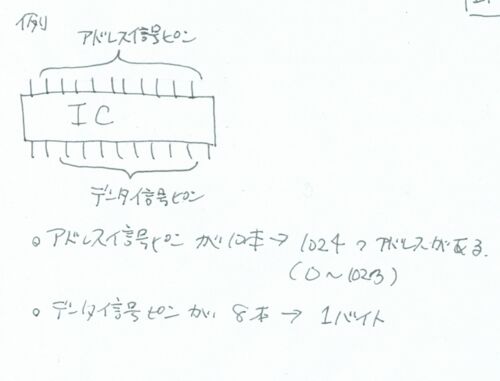 例
アドレス信号ピン
IC
データ信号ピン
○ アドレス信号ピンが10本→1024つアドレスがある.
(0~1023)
○ データ信号ピンが 8本→1バイト